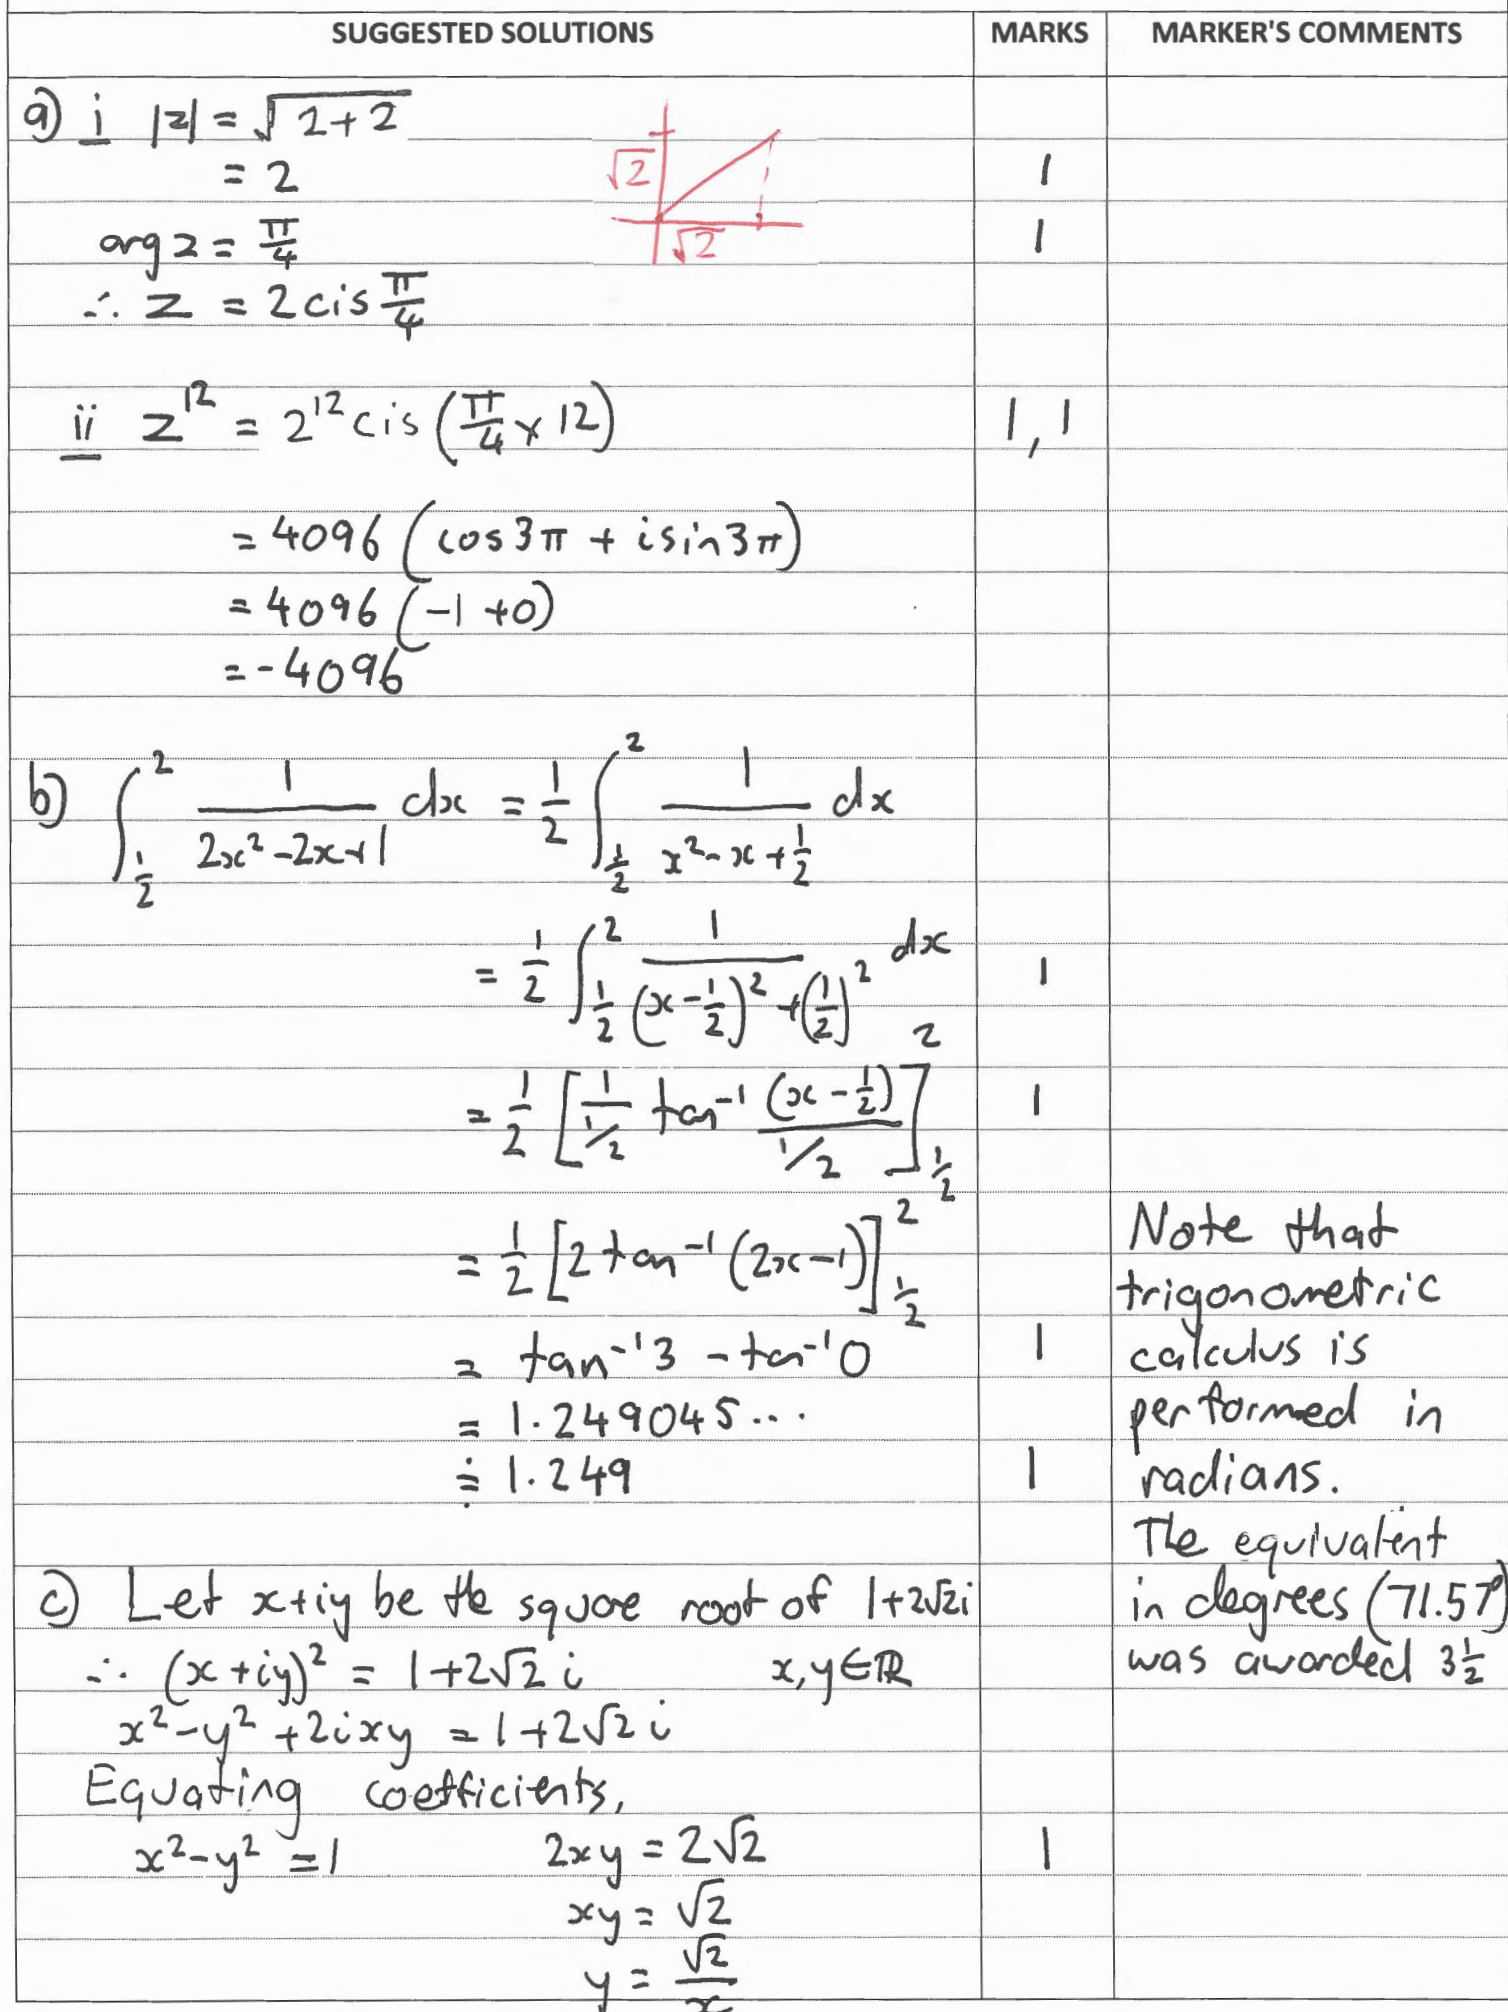 SUGGESTED SOLUTIONS MARKS MARKER'S COMMENTS
a) i |z| = √(2+2)
= 2 1
arg z = π/4 1
∴ z = 2 cis π/4
√2
√2
ii z^12 = 2^12 cis (π/4 × 12) 1, 1
= 4096 (cos 3π + i sin 3π)
= 4096 (-1 + 0)
= -4096
b) ∫_{1/2}^{2} 1/(2x² - 2x + 1) dx = 1/2 ∫_{1/2}^{2} 1/(x² - x + 1/2) dx
= 1/2 ∫_{1/2}^{2} 1/((x - 1/2)² + (1/2)²) dx 1
= 1/2 [1/(1/2) tan⁻¹ (x - 1/2)/(1/2)]_{1/2}^{2} 1
= 1/2 [2 tan⁻¹ (2x - 1)]_{1/2}^{2}
= tan⁻¹3 - tan⁻¹0 1
= 1.249045...
≑ 1.249 1
Note that
trigonometric
calculus is
performed in
radians.
The equivalent
in degrees (71.57°)
was awarded 3½
c) Let x+iy be the square root of 1+2√2i
∴ (x+iy)² = 1+2√2 i x, y ∈ ℝ
x² - y² + 2ixy = 1+2√2 i
Equating coefficients,
x² - y² = 1 2xy = 2√2 1
xy = √2
y = √2/x